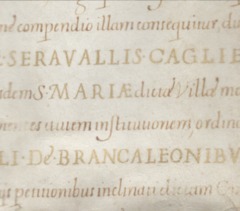 ne compendio illam consequitur, du
SERAVALLIS. CAGLIE
dem S. MARIÆ dictæ Villæ me
nentes autem institutionem, ordin
LI. De BRANCALEONIBV
petitionibus inclinati dictam Qu